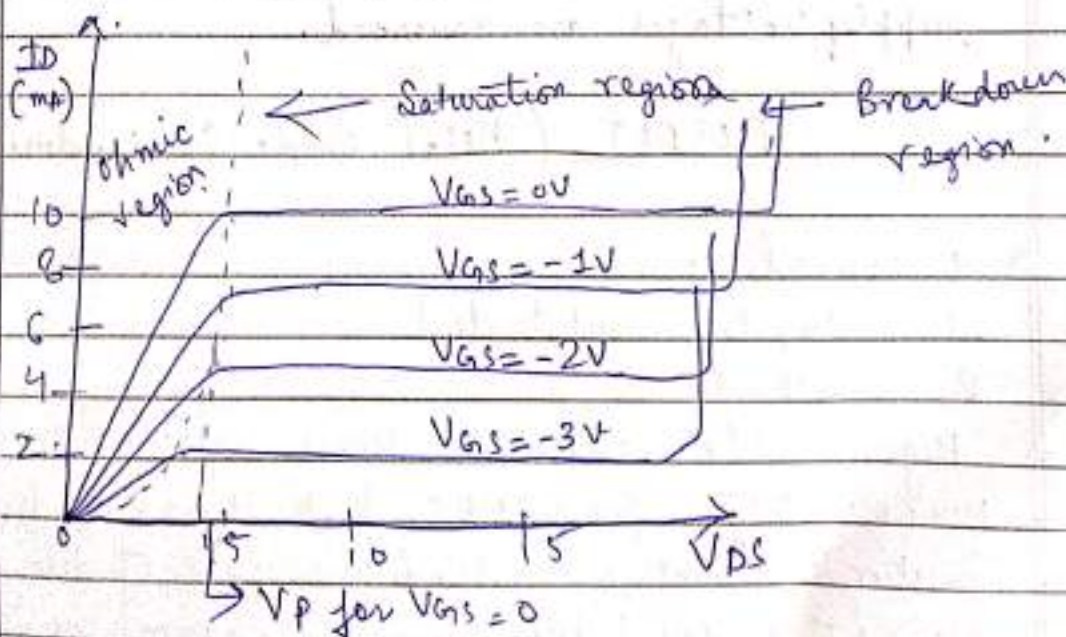 ID
(mA)
ohmic
region
Saturation region
Breakdown
region.
10
8
6
4
2
0
VGS = 0V
VGS = -1V
VGS = -2V
VGS = -3V
5
10
15
VDS
VP for VGS = 0